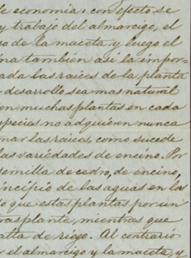 de economia: con efecto se
y trabajo del almarcigo, el
o de la maceta, y luego el
na tambien asi la impor-
ada las raices de la planta
desarrollo sea mas natural
en muchas plantas en cada
species no adquieren nunca
nar las raices, como sucede
las variedades de encino. Por
semilla de cedro, de encino,
incipio de las aguas en los
o que estas plantas por un
ras plante, mientras que
alta de riego. Al contrario
el almarcigo y la maceta, y